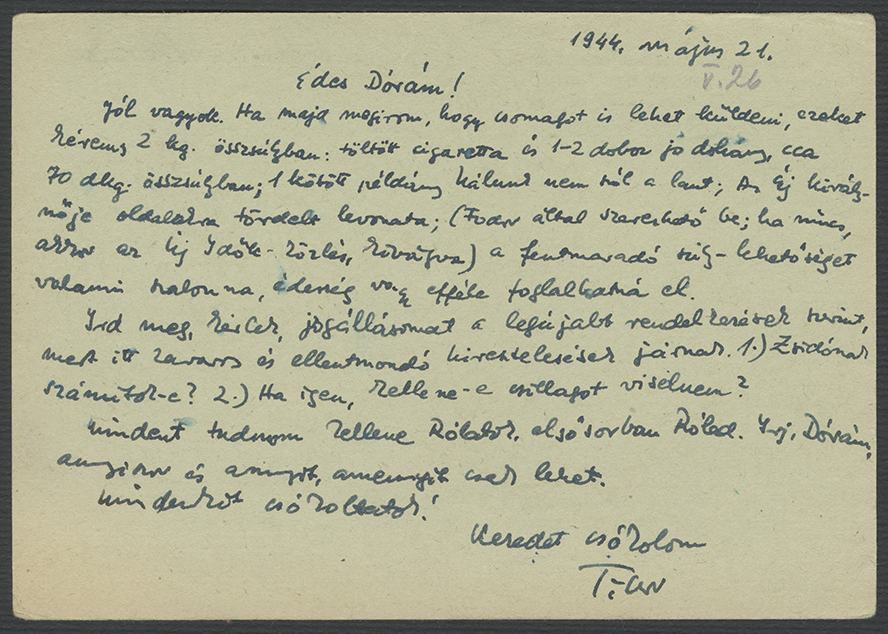 1944. május 21.
V. 26
Édes Dórám!
Jól vagyok. Ha majd megirom, hogy csomagot is lehet küldeni, ezeket
kérem, 2 kg. összsúlyban: töltött cigaretta és 1-2 doboz jó dohány, cca
70 dkg. összsúlyban; 1 kötött példány Nálunk nem szól a lant; Az Éj király-
nője oldalakra tördelt levonata; (Fodor által szerezhető be; ha nincs,
akkor az Új Idők-közlés, kivágva) a fentmaradó súly-lehetőséget
valami szalonna, édesség vagy efféle foglalhatná el.
Ird meg, kérlek, jogállásomat a legújabb rendelkezések szerint,
mert itt zavaros és ellentmondó híresztelések járnak. 1.) Zsidónak
számitok-e? 2.) Ha igen, kellene-e csillagot viselnem?
Mindent tudnom kellene Rólatok, elsősorban Rólad. Irj, Dórám,
annyiszor és annyit, amennyit csak lehet.
Mindenkit csókoltatok!
Kezedet csókolom